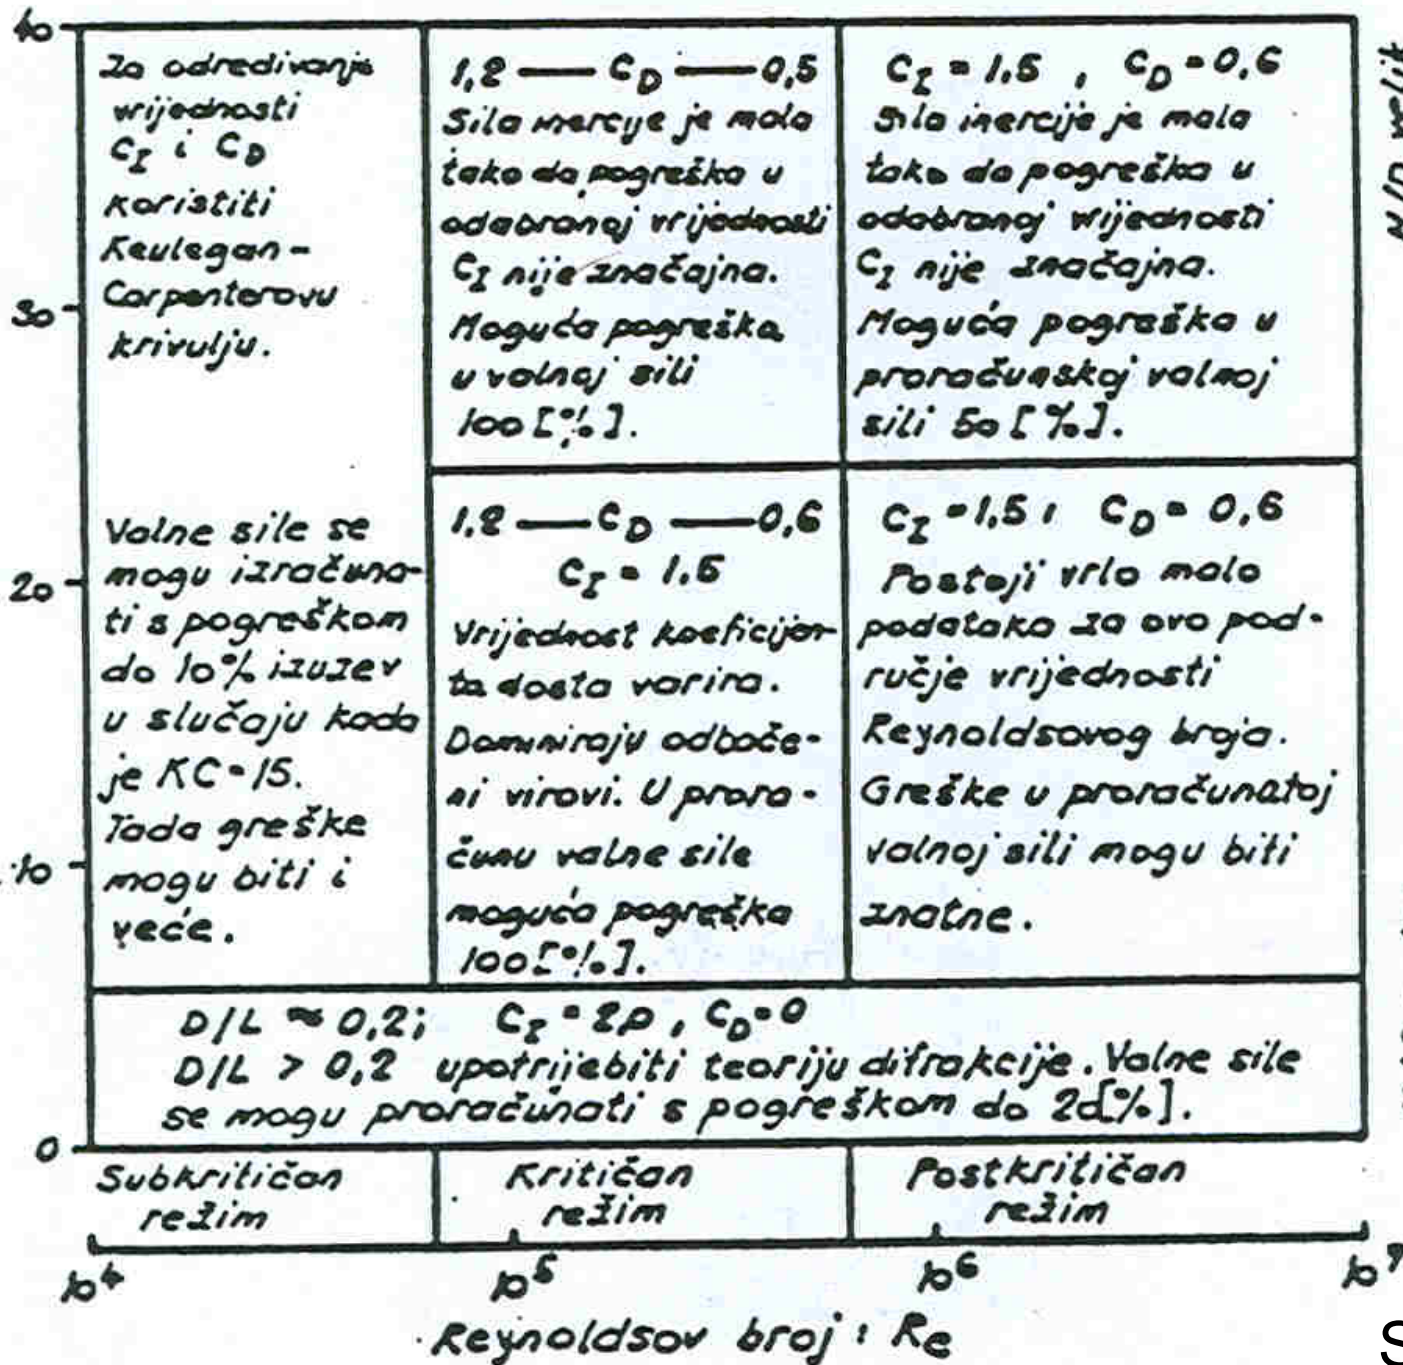 40
Za određivanje
vrijednosti
C_I i C_D
koristiti
Keulegan-
Carpenterovu
krivulju.
30
Valne sile se
mogu izračuna-
ti s pogreškom
do 10% izuzev
u slučaju kada
je KC=15.
Tada greške
mogu biti i
veće.
20
10
1,2 — C_D — 0,5
Sila inercije je mala
tako da pogreška u
odabranoj vrijednosti
C_I nije značajna.
Moguća pogreška
u valnoj sili
100 [%].
C_I = 1.5 , C_D = 0,6
Sila inercije je mala
tako da pogreška u
odabranoj vrijednosti
C_I nije značajna.
Moguća pogreška u
proračunskoj valnoj
sili 50 [%].
1,2 — C_D — 0,6
C_I = 1.5
Vrijednost koeficijen-
ta dosta varira.
Dominiraju odbače-
ni virovi. U prora-
čunu valne sile
moguća pogreška
100[%].
C_I = 1,5 , C_D = 0,6
Postoji vrlo malo
podataka za ovo pod-
ručje vrijednosti
Reynoldsovog broja.
Greške u proračunatoj
valnoj sili mogu biti
znatne.
D/L ≈ 0,2; C_I = 2,0 , C_D=0
D/L > 0,2 upotrijebiti teoriju difrakcije. Valne sile
se mogu proračunati s pogreškom do 20[%].
0
Subkritičan
režim
Kritičan
režim
Postkritičan
režim
10⁴ 10⁵ 10⁶ 10⁷
Reynoldsov broj : Re
S